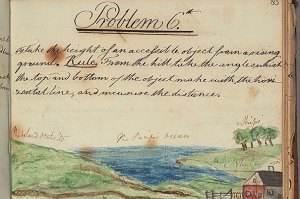 Problem 6.th
To take the height of an accessible object from a rising
ground. Rule. From the hill take the angle which
the top and bottom of the object make with the hori
zontal line, and measure the distance.
The Pacific Ocean